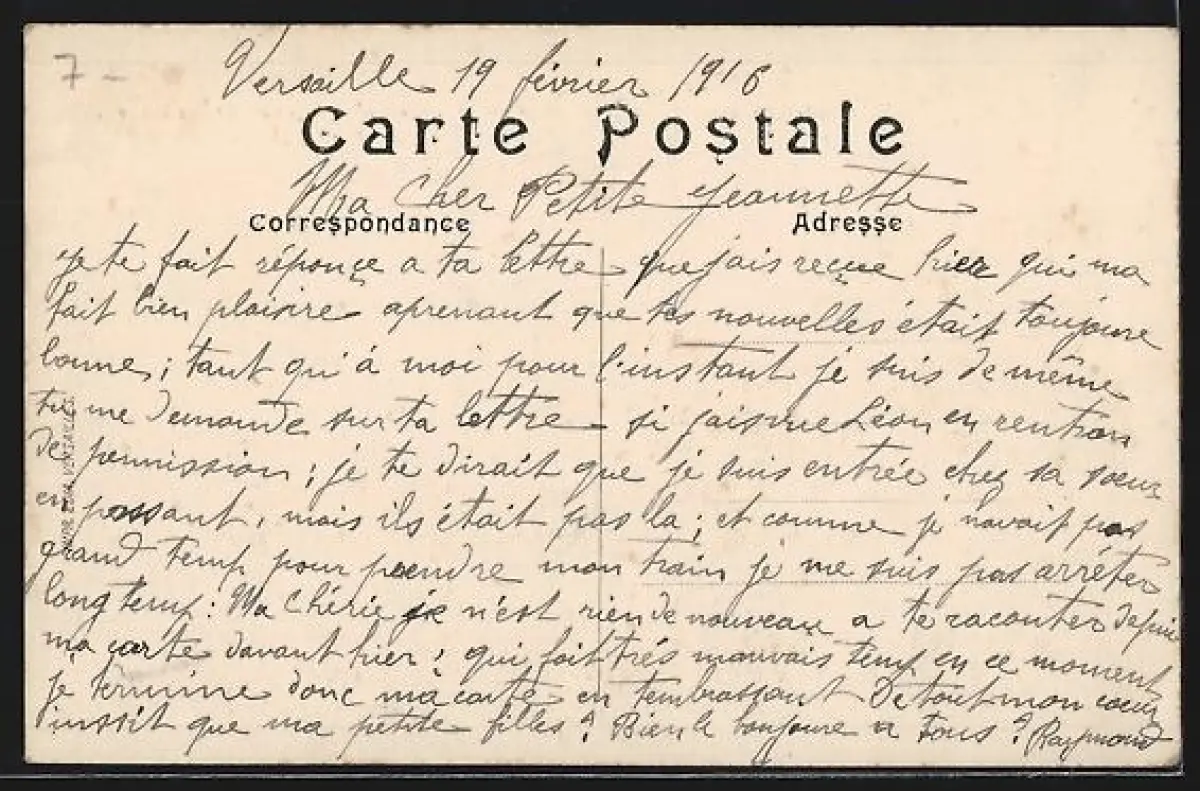 7 -
Versaille 19 février 1916
Carte Postale
Ma Cher Petite Jeannette
Correspondance Adresse
je te fait réponçe a ta lettre que jais reçue hier qui ma
fait bien plaisire aprenant que tes nouvelles était toujoure
bonne ; tant qu'à moi pour l'instant je suis de même
tu me demande sur ta lettre si jais vue Léon en rentran
de permission ; je te dirait que je suis entrée chez sa sœur
en passant, mais ils était pas la ; et comme je navait pas
grand temp pour prendre mon train je me suis pas arréter
longtemp : Ma Chérie je n'est rien de nouveau a te raconter depuis
ma carte davant hier ; qui fait trés mauvais temp en ce moment
je termine donc ma carte en tembrassant de tout mon cœur
inssit que ma petite filles ? Bien le toujoure a tous ? Raymond